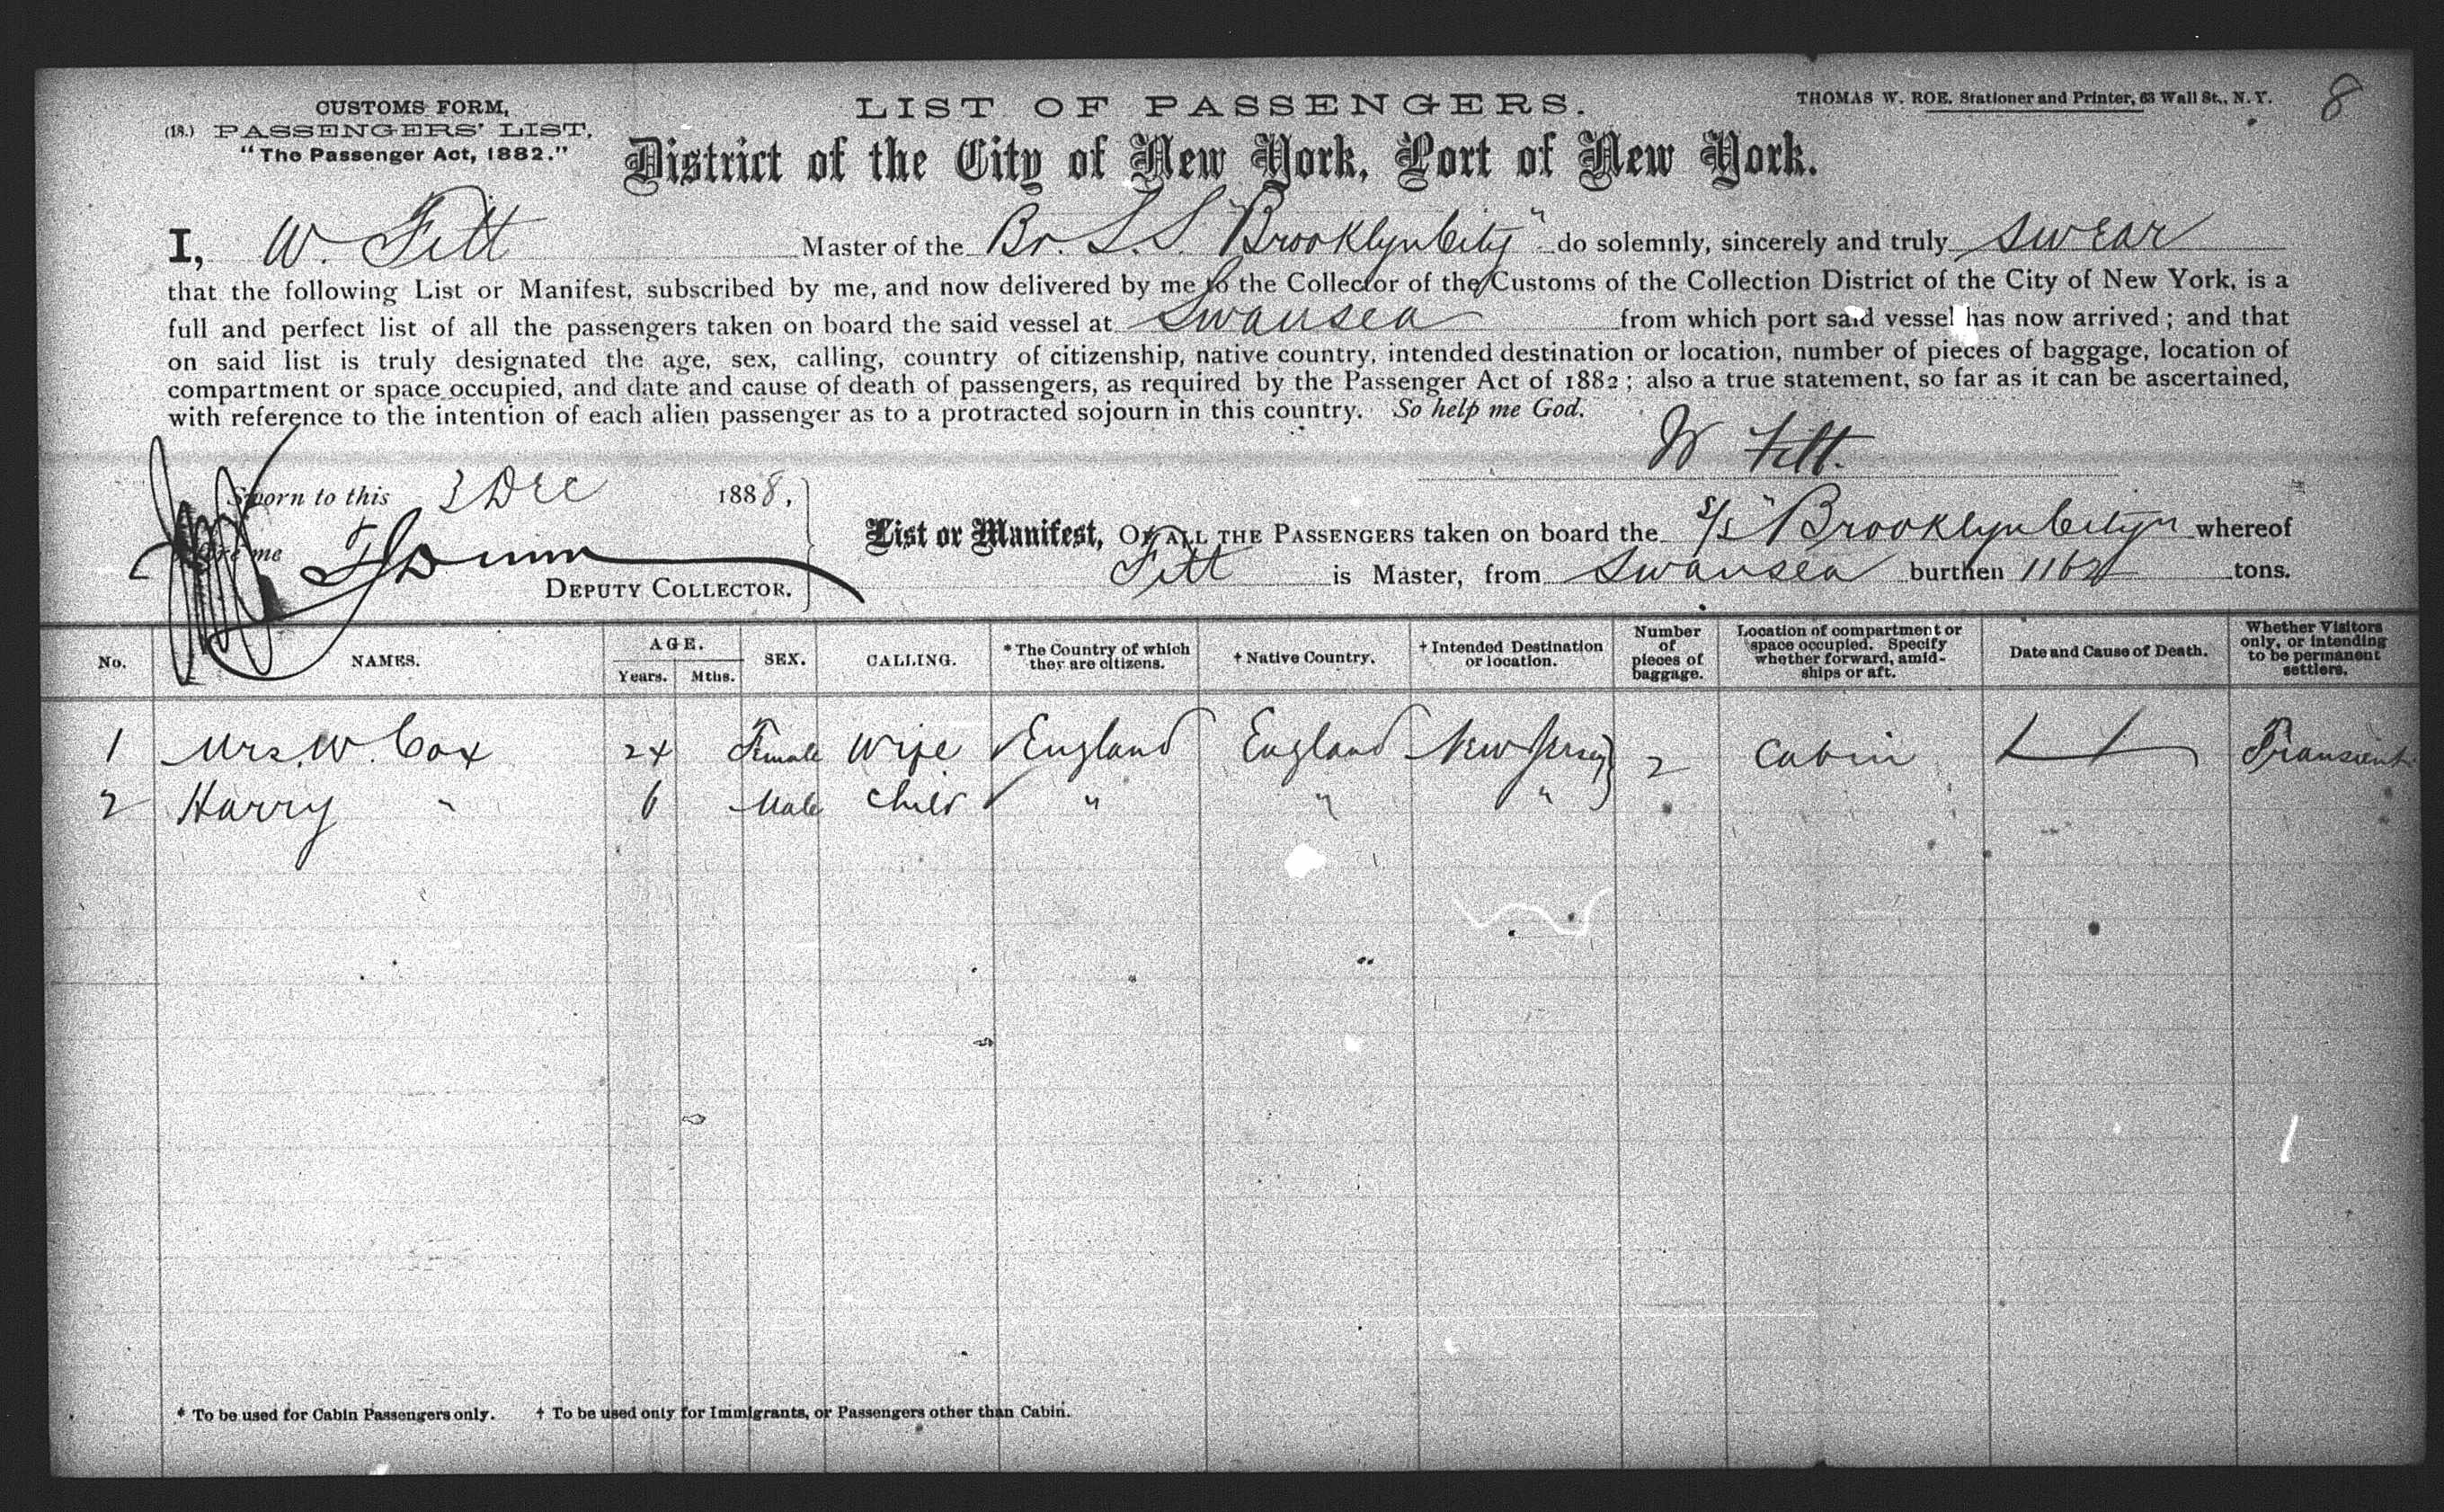 CUSTOMS FORM,
(18.) PASSENGERS' LIST,
"The Passenger Act, 1882."
LIST OF PASSENGERS.
THOMAS W. ROE, Stationer and Printer, 63 Wall St., N. Y.
8
District of the City of New York, Port of New York.
I, W. Fitt Master of the Br. S.S. "Brooklyn City" do solemnly, sincerely and truly swear
that the following List or Manifest, subscribed by me, and now delivered by me to the Collector of the Customs of the Collection District of the City of New York, is a
full and perfect list of all the passengers taken on board the said vessel at Swansea from which port said vessel has now arrived; and that
on said list is truly designated the age, sex, calling, country of citizenship, native country, intended destination or location, number of pieces of baggage, location of
compartment or space occupied, and date and cause of death of passengers, as required by the Passenger Act of 1882; also a true statement, so far as it can be ascertained,
with reference to the intention of each alien passenger as to a protracted sojourn in this country. So help me God.
W Fitt.
Sworn to this 3 Dec 1888,
before me
DEPUTY COLLECTOR.
List or Manifest, OF ALL THE PASSENGERS taken on board the S/S "Brooklyn City" whereof
Fitt is Master, from Swansea burthen tons.
No. NAMES. AGE. Years. Mths. SEX. CALLING. *The Country of which they are citizens. †Native Country. †Intended Destination or location. Number of pieces of baggage. Location of compartment or space occupied. Specify whether forward, amidships or aft. Date and Cause of Death. Whether Visitors only, or intending to be permanent settlers.
1 Mrs. W. Cox 24 Female Wife England England New Jersey 2 Cabin Transient
2 Harry " 6 Male Child " " "
* To be used for Cabin Passengers only. † To be used only for Immigrants, or Passengers other than Cabin.